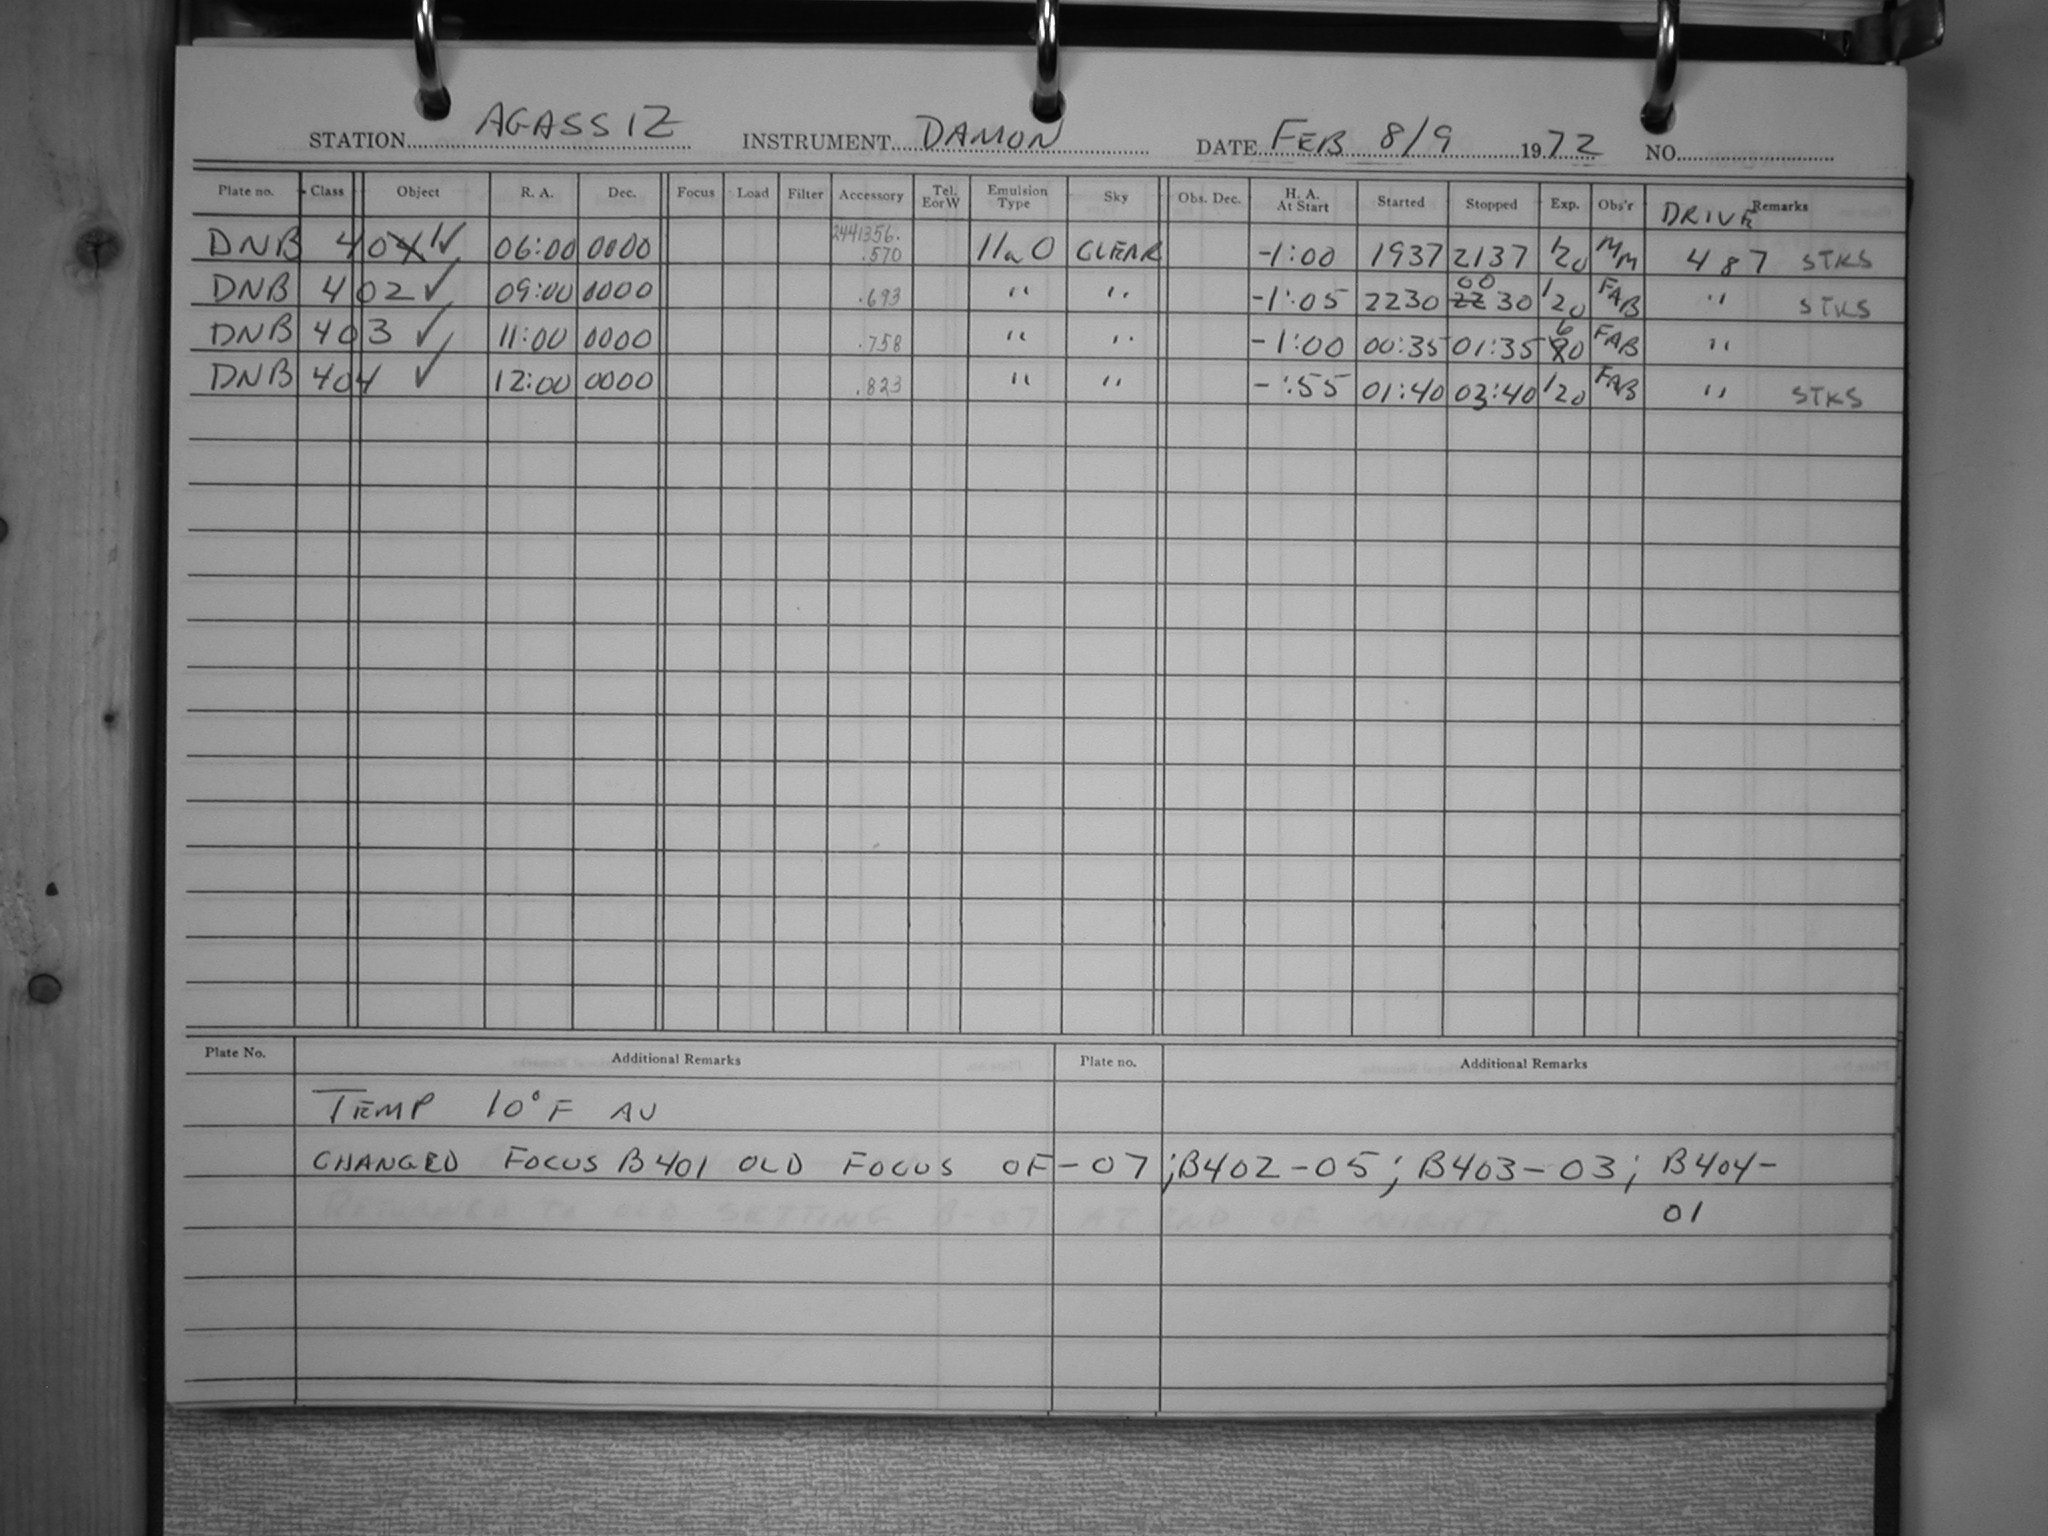 STATION AGASSIZ INSTRUMENT DAMON DATE FEB 8/9 1972 NO.
Plate no. Class Object R. A. Dec. Focus Load Filter Accessory Tel. E or W Emulsion Type Sky Obs. Dec. H. A. At Start Started Stopped Exp. Obs'r DRIVE Remarks
DNB 401 ✓ 06:00 0000 2441356.570 IIaO CLEAR -1:00 1937 2137 120 MM 487 STKS
DNB 402 ✓ 09:00 0000 .693 " " -1:05 2230 0030 120 FAB " STKS
DNB 403 ✓ 11:00 0000 .758 " " -1:00 00:35 01:35 60 FAB "
DNB 404 ✓ 12:00 0000 .823 " " -:55 01:40 03:40 120 FAB " STKS
Plate No. Additional Remarks Plate no. Additional Remarks
TEMP 10°F AV
CHANGED FOCUS B401 OLD FOCUS OF -07; B402-05; B403-03; B404-
01
RETURNED TO OLD SETTING B-07 AT END OF NIGHT.